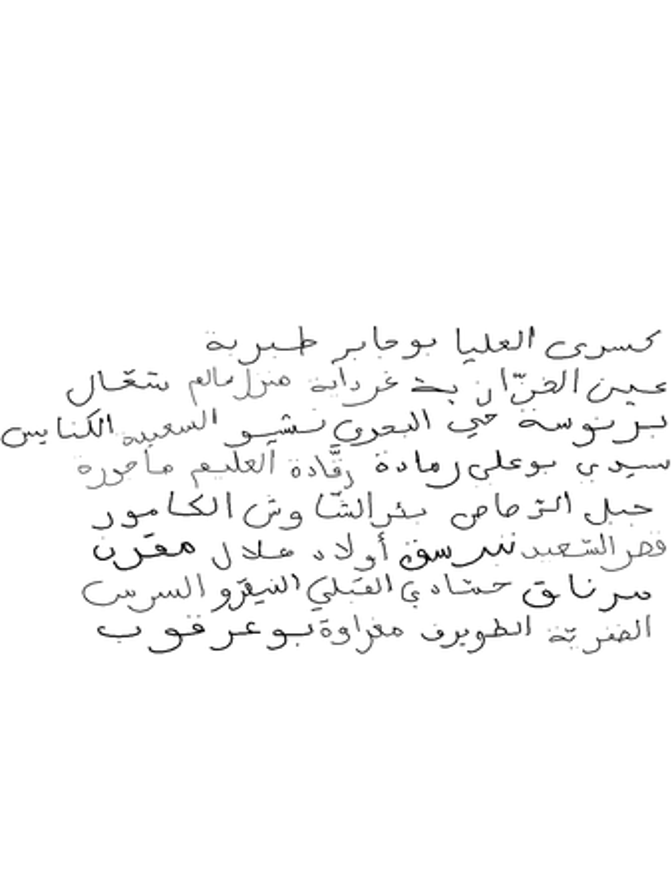 كسرى العليا بوجابر طبربة
عين الخزّان بخ غرداية منزل سالم شعّال
برنوسة حي البحري نشيو السعيدية الكنايس
سيدي بوعلي رمادة رقّادة العليم ماجورة
جبل الرصاص بئر الشّاوش الكامور
قصر السّعيد سيدي أولاد هلال مقرن
مرناق حشادي القبلي النيڨرو السرس
الغريّة الطويرف مغراوة بوعرقوب